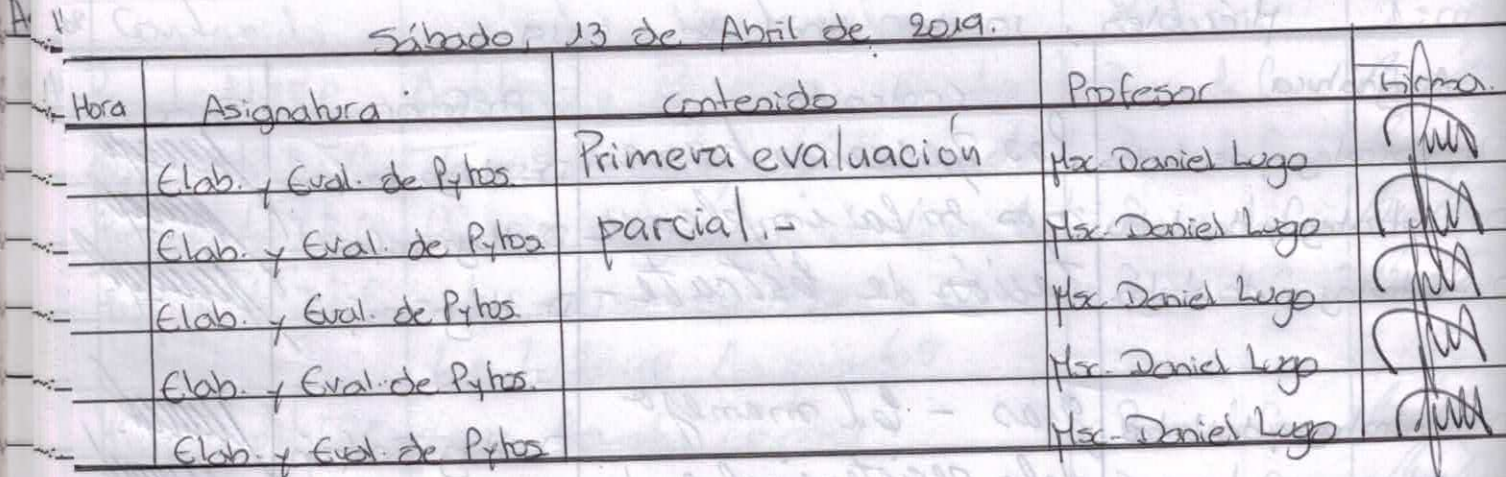 Sábado, 13 de Abril de 2019.
Hora Asignatura contenido Profesor Firma.
Elab. y Eval. de Pytos. Primera evaluación Msc. Daniel Lugo
Elab. y Eval. de Pytos. parcial.- Msc. Daniel Lugo
Elab. y Eval. de Pytos. Msc. Daniel Lugo
Elab. y Eval. de Pytos. Msc. Daniel Lugo
Elab. y Eval. de Pytos. Msc. Daniel Lugo